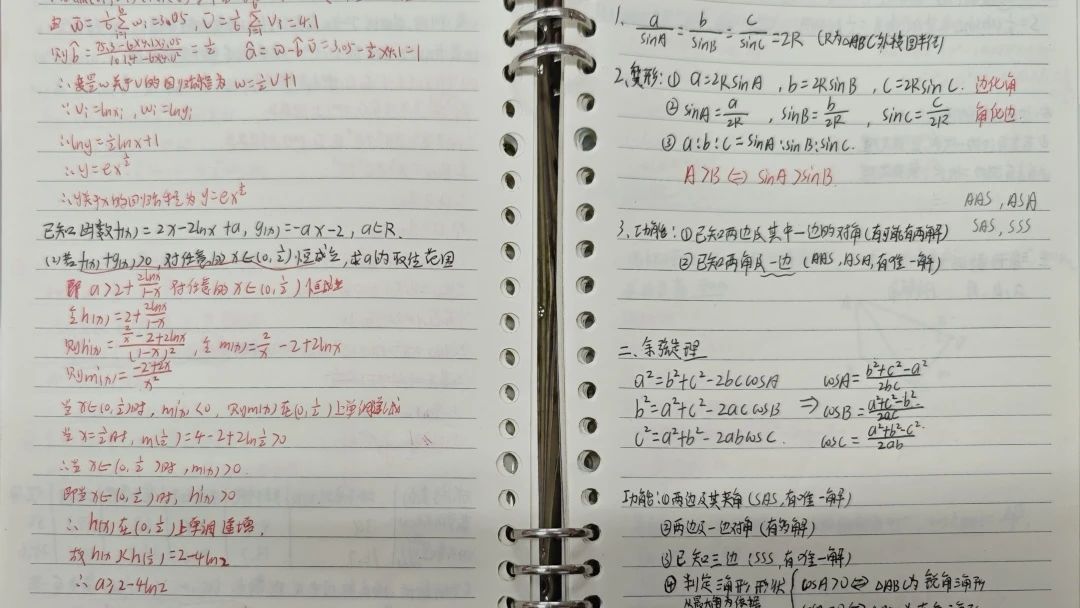 由 w̄=1/6∑wᵢ=3.05, v̄=1/6∑vᵢ=4.1
则b̂=(75.3-6×4.1×3.05)/(101.4-6×4.1²)=1/2 â=w̄-b̂v̄=3.05-1/2×4.1=1
∴变量w关于v的回归方程为 w=1/2v+1
∵vᵢ=lnxᵢ, wᵢ=lnyᵢ
∴lny=1/2lnx+1
∴y=ex^{1/2}
∴y关于x的回归方程为y=ex^{1/2}
已知函数f(x)=2x-2lnx+a, g(x)=-ax-2, a∈R.
(2)若f(x)+g(x)>0,对任意的x∈(0,1/2)恒成立,求a的取值范围
即 a>2+2lnx/(1-x) 对任意的x∈(0,1/2)恒成立
令h(x)=2+2lnx/(1-x)
则h'(x)=(2/x-2+2lnx)/(1-x)², 令 m(x)=2/x-2+2lnx
则m'(x)=(-2+2x)/x²
当x∈(0,1/2)时, m'(x)<0, 则m(x)在(0,1/2)上单调递减
当x=1/2时, m(1/2)=4-2+2ln1/2>0
∴当x∈(0,1/2)时, m(x)>0.
即当x∈(0,1/2)时, h'(x)>0
∴h(x)在(0,1/2)上单调递增,
故h(x)<h(1/2)=2-4ln2
∴a≥2-4ln2
1. a/sinA=b/sinB=c/sinC=2R (R为△ABC外接圆半径)
2.变形:① a=2RsinA, b=2RsinB, c=2RsinC. 边化角
② sinA=a/2R, sinB=b/2R, sinC=c/2R 角化边.
③ a:b:c=sinA:sinB:sinC.
A>B⇔sinA>sinB.
AAS, ASA
SAS, SSS
3.功能:①已知两边及其中一边的对角(有可能有两解)
②已知两角及一边(AAS,ASA,有唯一解)
二、余弦定理
a²=b²+c²-2bccosA cosA=(b²+c²-a²)/2bc
b²=a²+c²-2accosB ⇒ cosB=(a²+c²-b²)/2ac
c²=a²+b²-2abcosC. cosC=(a²+b²-c²)/2ab
功能:①两边及其夹角(SAS,有唯一解)
②两边及一边对角(有多解)
③已知三边(SSS,有唯一解)
④判定三角形形状{cosA>0⇔△ABC为锐角三角形
从最大角为依据